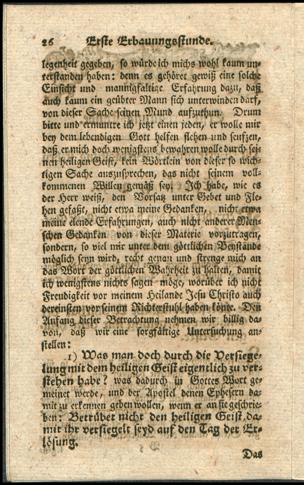 26 Erste Erbauungsstunde.
legenheit gegeben, so würde ich michs wohl kaum un-
terstanden haben: denn es gehöret gewiß eine solche
Einsicht und mannigfaltige Erfahrung dazu, daß
auch kaum ein geübter Mann sich unterwinden darf,
von dieser Sache seinen Mund aufzuthun. Drum
bitte und ermuntre ich jetzt einen jeden, er wolle mir
bey dem lebendigen Gott helfen flehen und seufzen,
daß er mich doch wenigstens bewahren wolle durch sei-
nen heiligen Geist, kein Wörtlein von dieser so wich-
tigen Sache auszusprechen, das nicht seinem voll-
kommenen Willen gemäß sey. Ich habe, wie es
der Herr weiß, den Vorsatz unter Gebet und Fle-
hen gefaßt, nicht etwa meine Gedanken, nicht etwa
meine elende Erfahrungen, auch nicht anderer Men-
schen Gedanken von dieser Materie vorzutragen,
sondern, so viel mir unter dem göttlichen Beystande
möglich seyn wird, recht genau und strenge mich an
das Wort der göttlichen Wahrheit zu halten, damit
ich wenigstens nichts sagen möge, worüber ich nicht
Freudigkeit vor meinem Heilande Jesu Christo auch
dereinsten vor seinem Richterstuhl haben könte. Den
Anfang dieser Betrachtung nehmen wir billig da-
von, daß wir eine sorgfältige Untersuchung an-
stellen:
1) Was man doch durch die Versiege-
lung mit dem heiligen Geist eigentlich zu ver-
stehen habe? was dadurch in Gottes Wort ge-
meinet werde, und der Apostel denen Ephesern da-
mit zu erkennen geben wollen, wenn er an sie geschrie-
ben: Betrüber nicht den heiligen Geist, da-
mit ihr versiegelt seyd auf den Tag der Er-
lösung.
Das